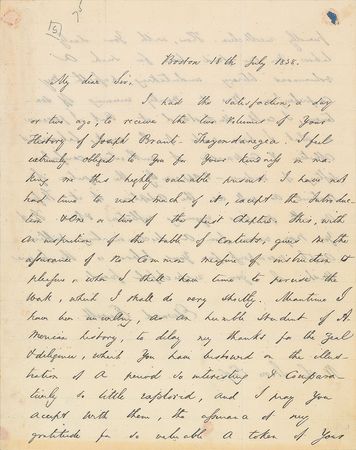 5
Boston 18th July 1838.
My dear Sir,
I had the satisfaction, a day
or two ago, to receive the two Volumes of Your
History of Joseph Brant - Thayendanegea. I feel
extremely obliged to You for Your kindness in ma
king me this highly valuable present. I have not
had time to read much of it, except the Introduc-
tion & One or two of the first Chapters. This, with
an inspection of the table of Contents, gives me the
assurance of no Common measure of instruction &
pleasure, when I shall have time to peruse the
Work, which I shall do very shortly. Meantime I
have been unwilling, as an humble Student of A
merican history, to delay my thanks for the Zeal
& diligence, which You have bestowed on the illus-
tration of A period so interesting & Compara-
tively so little explored, and I pray You
accept with them, the assurance of my
gratitude for so valuable A token of Your